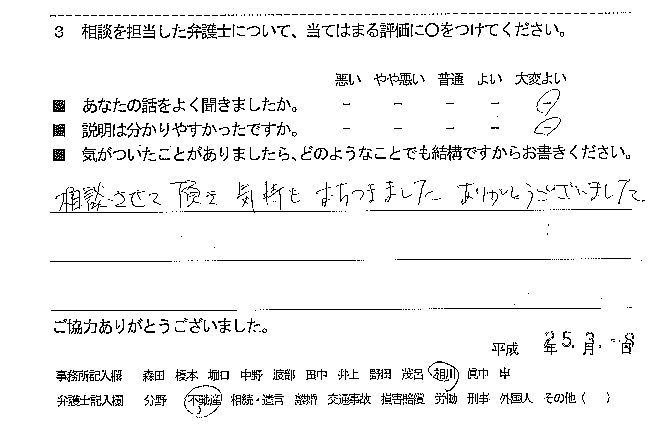 3 相談を担当した弁護士について、当てはまる評価に〇をつけてください。
悪い やや悪い 普通 よい 大変よい
あなたの話をよく聞きましたか。 - - - - -
説明は分かりやすかったですか。 - - - - -
気がついたことがありましたら、どのようなことでも結構ですからお書きください。
相談させて頂き 気持も おちつきました ありがとうございました
ご協力ありがとうございました。
平成 25年 3月 8日
事務所記入欄 森田 榎本 堀口 中野 渡部 田中 井上 野田 茂呂 相川 眞中
弁護士記入欄 分野 不動産 相続・遺言 離婚 交通事故 損害賠償 労働 刑事 外国人 その他( )